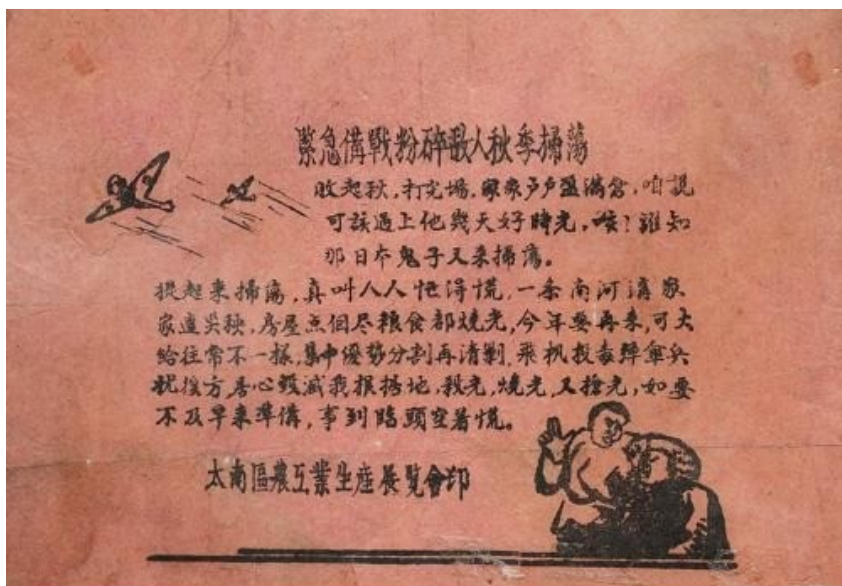 緊急備戰粉碎敵人秋季掃蕩
收起秋，打完場，家家户户盈滿倉，咱説
可該過上他幾天好時光，咳！誰知
那日本鬼子又来掃蕩。
提起来掃蕩，真叫人人怕得慌，一条南河溝家
家遭災殃，房屋点個尽粮食都燒光，今年要再来，可大
給往常不一樣，集中優势分割再清剿，飛机投毒弹傘兵
扰後方居心毀滅我根据地，殺光，燒光，又搶光，如要
不及早来準備，事到临頭空着慌。
太南區農工業生産展覽會印